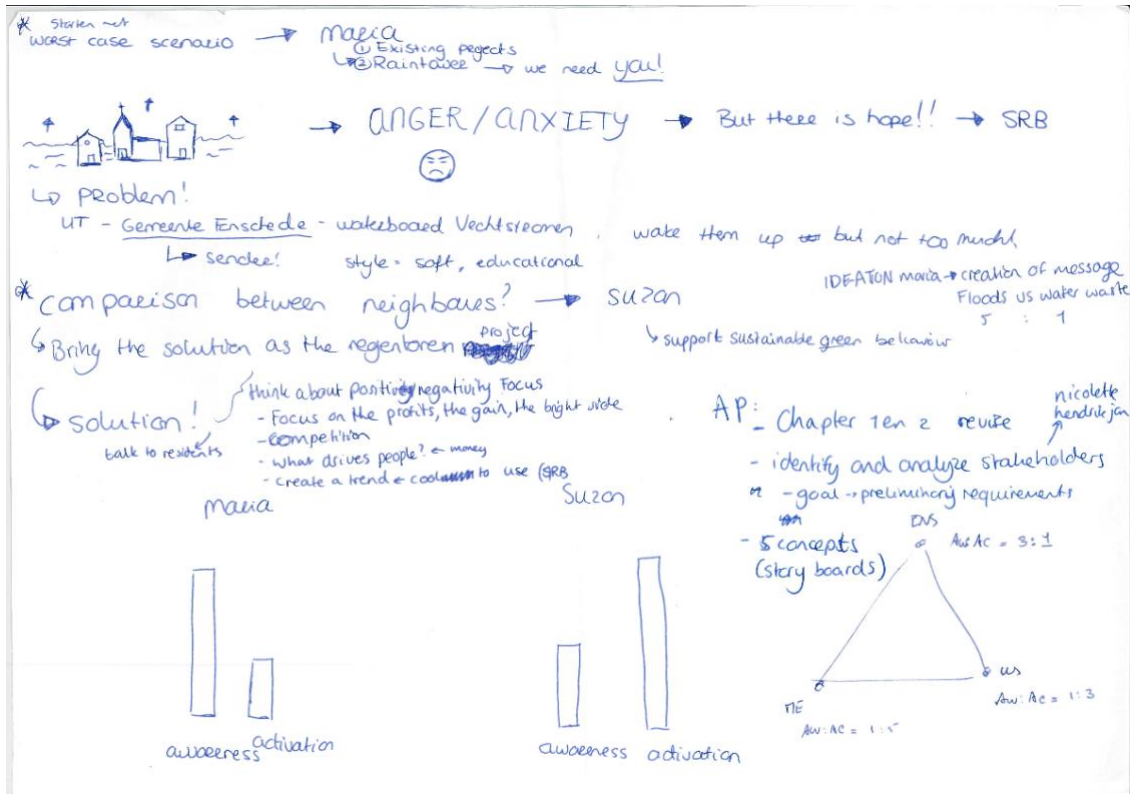 * Starten met
worst case scenario → maria
① Existing projects
↳ ② Raintower → we need you!
→ ANGER / ANXIETY → But there is hope!! → SRB
↳ problem!
UT - Gemeente Enschede - waterboard Vechtstromen . wake them up but not too much!
↳ sender! style = soft, educational
IDEATON maria → creation of message
Floods vs water waste
5 : 1
* comparison between neighbours? → suzan
↳ support sustainable green behaviour
↳ Bring the solution as the regentoren project
↳ solution!
talk to residents
think about positivity negativity Focus
- Focus on the profits, the gain, the bright side
- competition
- what drives people? ← money
- create a trend ← cool to use (SRB
AP:
- Chapter 1 en 2 revise
nicolette
hendrik jan
- identify and analyze stakeholders
- goal → preliminary requirements
- 5 concepts
(story boards)
maria
awareness activation
Suzan
awareness activation
Aw:Ac = 3:1
ME
Aw:Ac = 1:5
us
Aw:Ac = 1:3